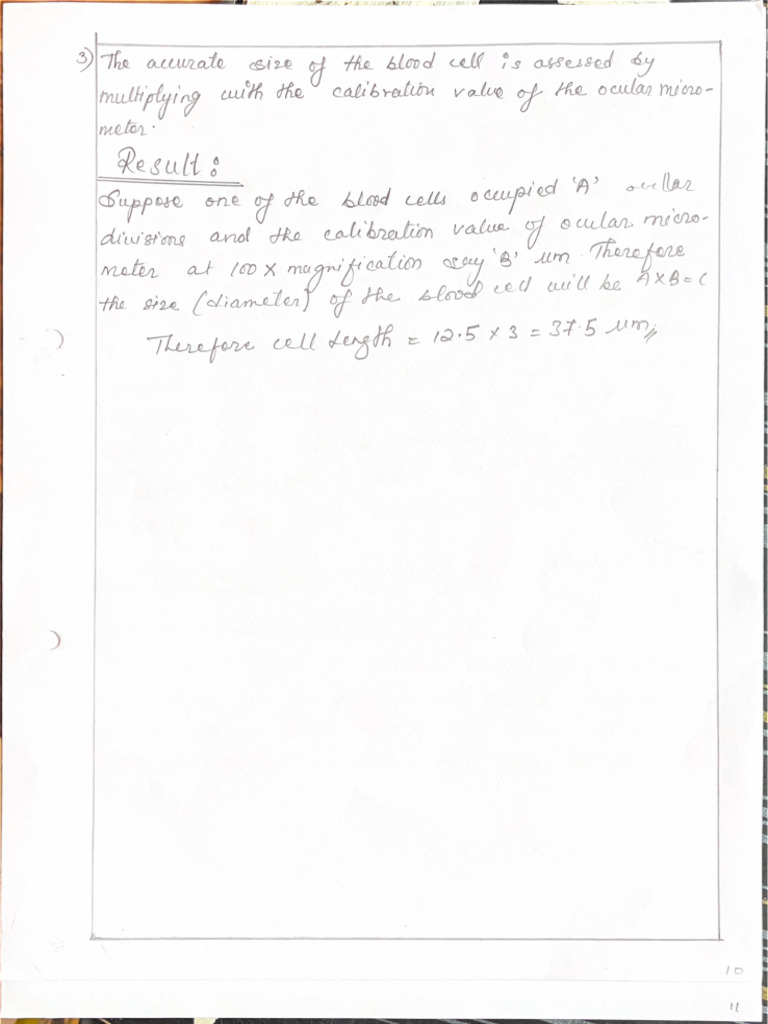 3) The accurate size of the blood cell is assessed by
multiplying with the calibration value of the ocular micro-
meter.
Result:
Suppose one of the blood cells occupied 'A' ocullar
divisions and the calibration value of ocular micro-
meter at 100 x magnification say 'B' um. Therefore
the size (diameter) of the blood cell will be A x B = C
Therefore cell length = 12.5 x 3 = 37.5 um
10
11